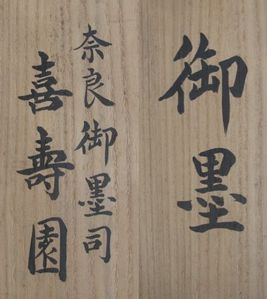 御墨
奈良御墨司
喜壽園